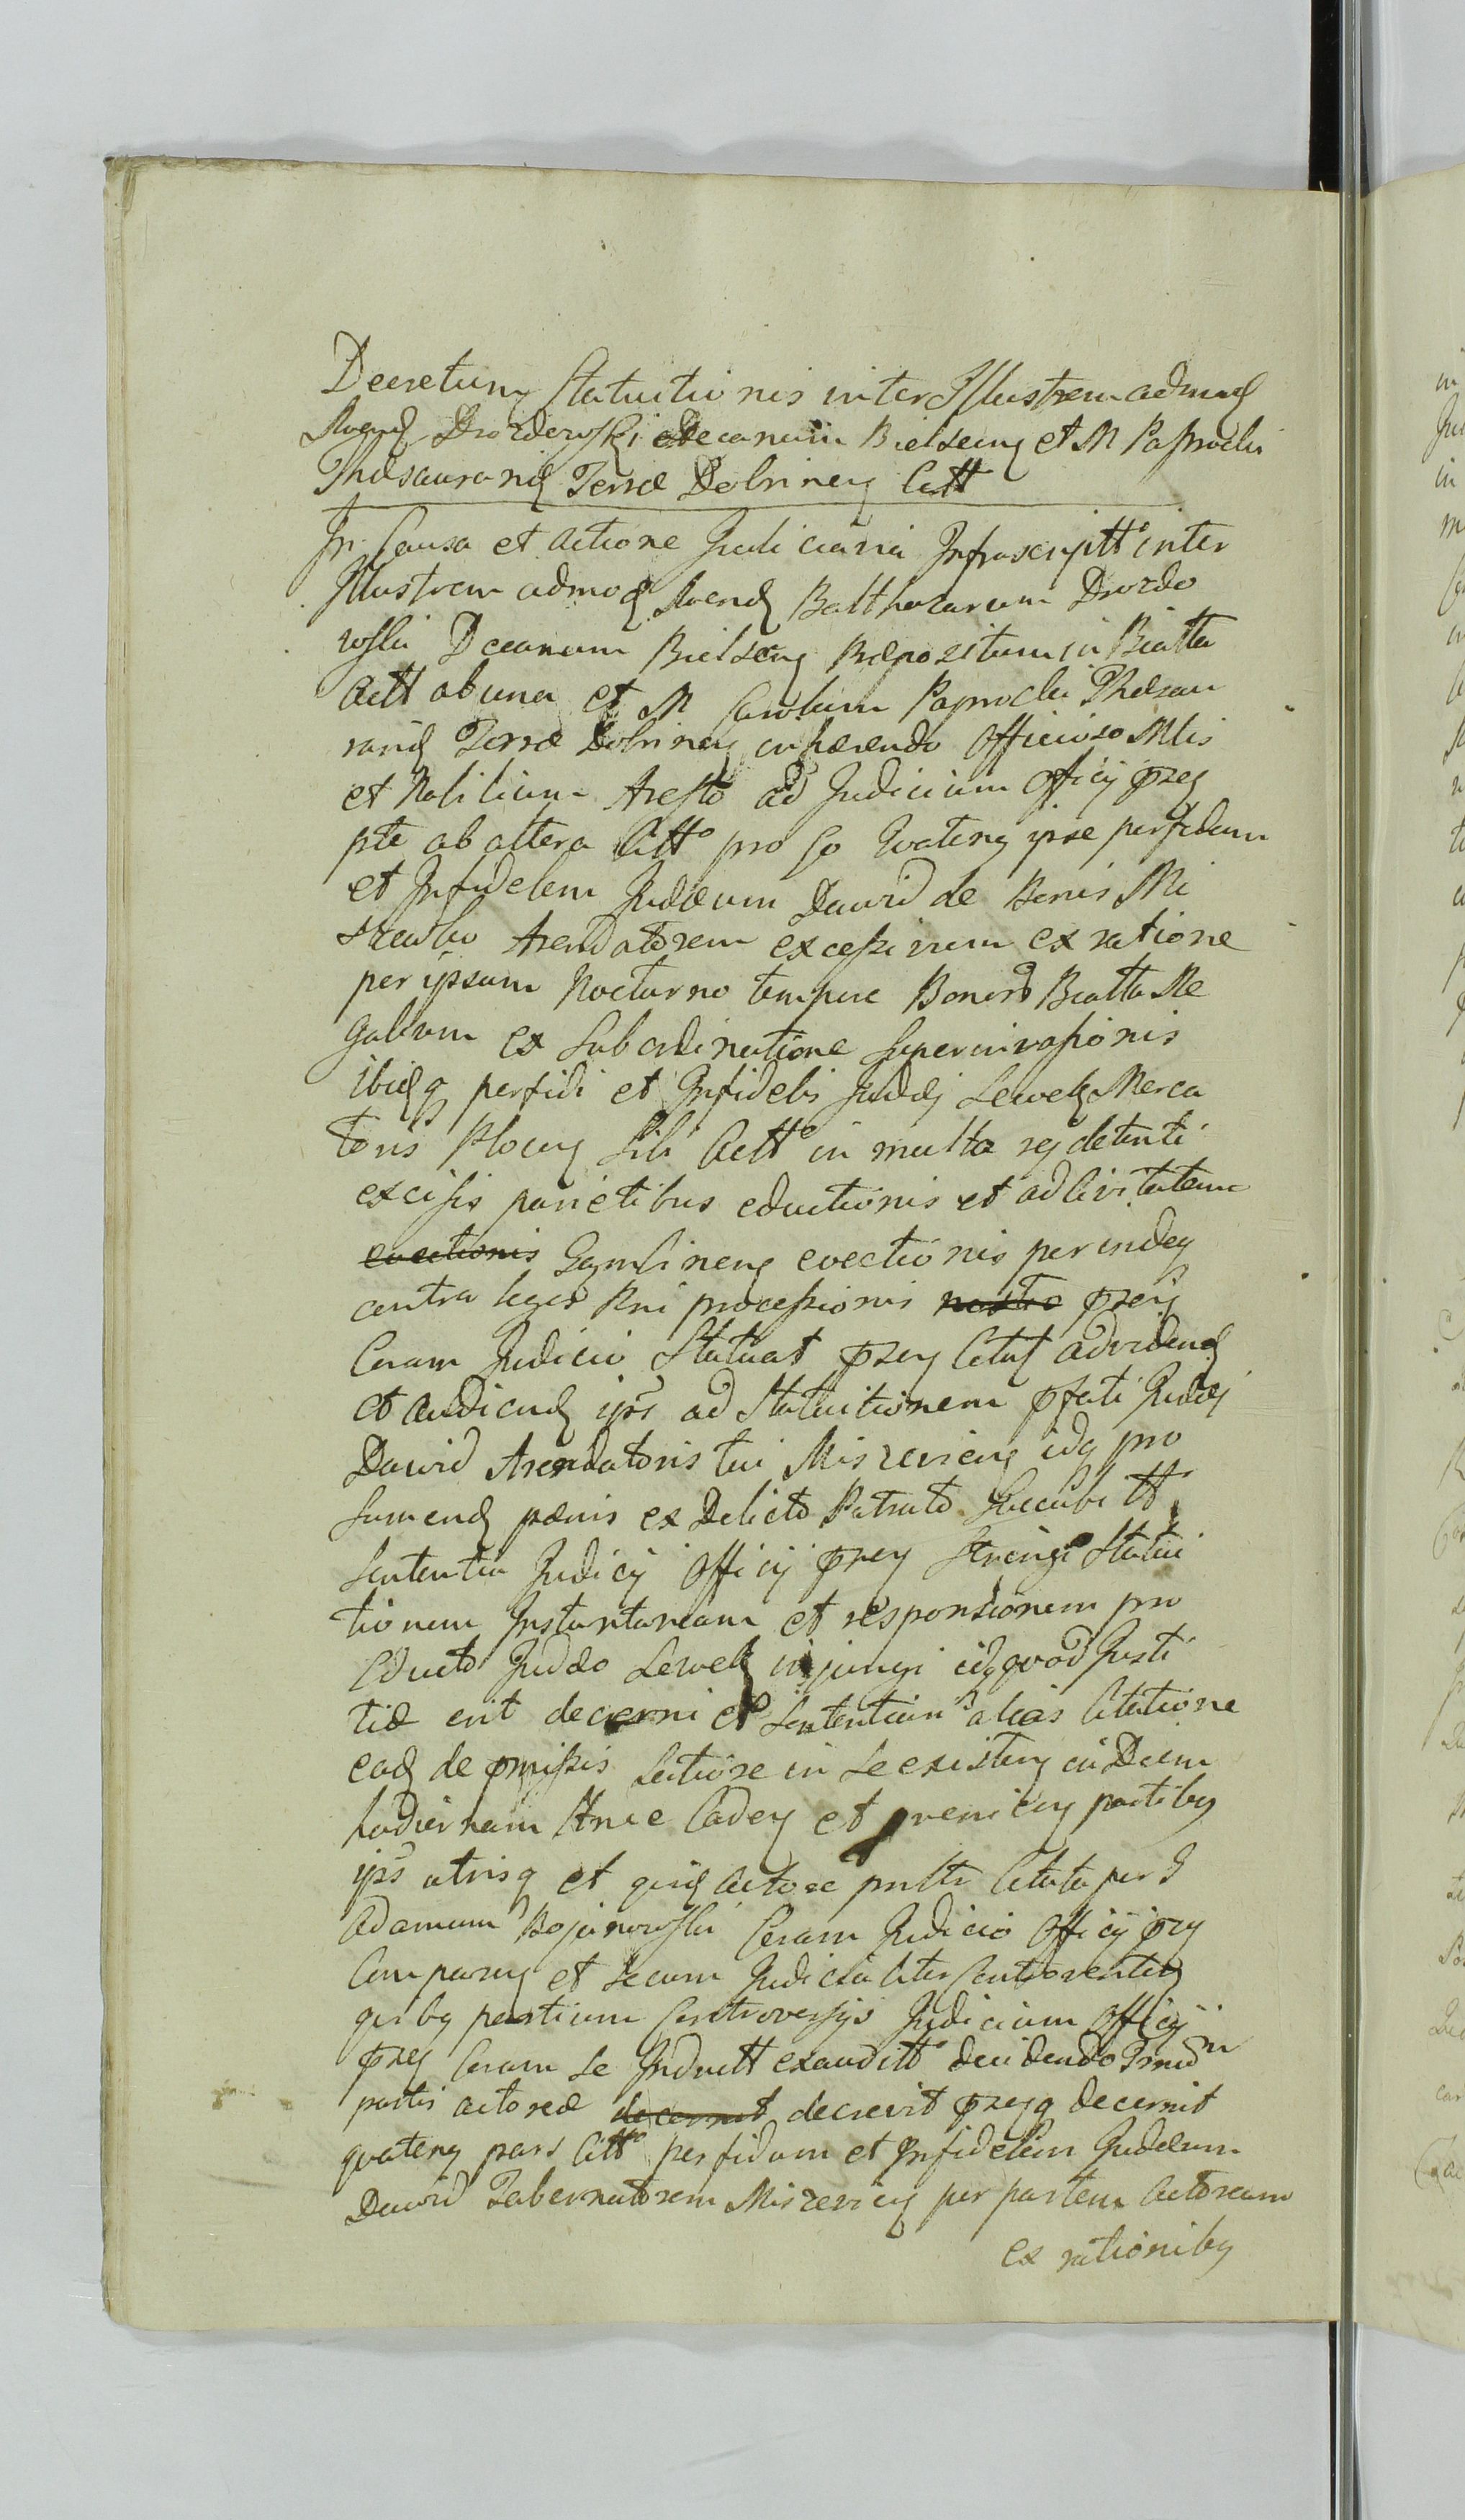 Decretum Statuitionis inter Illustrem admod
Rvend Drozdewski Decanum Bielscen et M Paprocki
Thesaurarid Terræ Dobrinen Citt
In Causa et actione Judiciaria Infrascriptt inter
Illustrem admod Rvend Balthazarum Drozdo
wski Decanum Bielscen Præpozitum in Biatta
Actt ab una et M Carolum Paprocki Thesau
rarid Terræ Dobrinen inhærendo Officioso Mlis
et Nobilium Aresto ad Judicium Officij præn
pte ab altera Citt pro eo Quateng ipse perfidum
et Infidelem Judæum Dawid de Bonis Mi
szewko Arendatorem excessivum ex ratione
per ipsum Nocturno tempore Bonord Biatta Re
galium ex Subordinatione Superinvasionis
ibidq perfidi et Infidelis Judæj Lewek Merca
toris Plocen Sibi Actt in multa rej detenti
excisis parietibus eductionis et ad Civitatem
evectionis Gąmbinen evectionis perindeq
contra leges Rni processionis nostro præn
Coram Judicio Statuat præn Citat ad vidend
et audiend ipst ad Statuitionem pfati Judæj
Dawid Arendatoris tui Miszevien idq pro
sumend pænis ex Delicto Patrato Succubitt
Sententia Judicij Officij præn Stringi Statui
tionem Instantaneam et responsionem pro
Educto Judæo Lewek injungi idq quod Justi
tiæ erit decerni et Sententiari alias Citatione
ead de pmissis Latiore in se existen in Diem
hodiernam Hnc Caden et provenien partibg
ips utrisq et quid Actorea pnltr Citata per G
Adamum Bojanowski Coram Judicio Officij præn
Comparen et secum Judicialiter Controverten
quibg partium Controversijs Judicium Officij
præn Coram se Induett exauditt decidendo Imid
partis actoreæ decernit decrevit præsq decernit
quateng pars Citt perfidum et Infidelem Judæum
Dawid Tabernatorem Miszevien per partem Actoream
ex rationibg